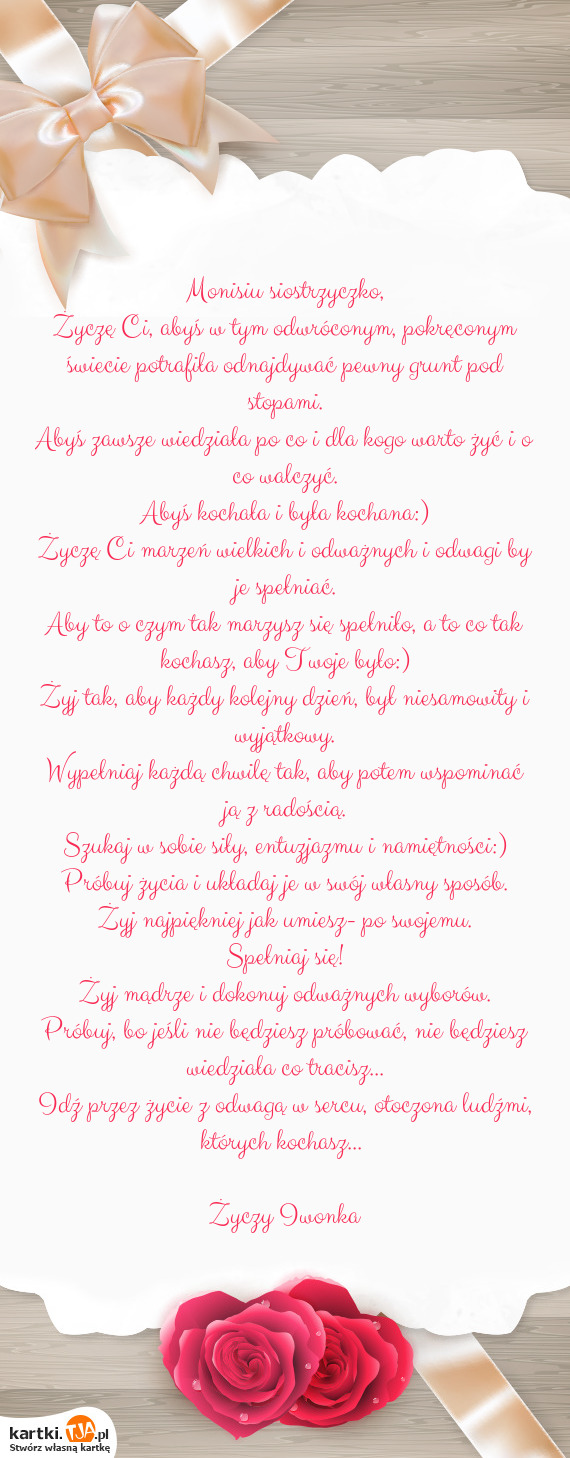 Monisiu siostrzyczko,
Życzę Ci, abyś w tym odwróconym, pokręconym
świecie potrafiła odnajdywać pewny grunt pod
stopami.
Abyś zawsze wiedziała po co i dla kogo warto żyć i o
co walczyć.
Abyś kochała i była kochana:)
Życzę Ci marzeń wielkich i odważnych i odwagi by
je spełniać.
Aby to o czym tak marzysz się spełniło, a to co tak
kochasz, aby Twoje było:)
Żyj tak, aby każdy kolejny dzień, był niesamowity i
wyjątkowy.
Wypełniaj każdą chwilę tak, aby potem wspominać
ją z radością.
Szukaj w sobie siły, entuzjazmu i namiętności:)
Próbuj życia i układaj je w swój własny sposób.
Żyj najpiękniej jak umiesz- po swojemu.
Spełniaj się!
Żyj mądrze i dokonuj odważnych wyborów.
Próbuj, bo jeśli nie będziesz próbować, nie będziesz
wiedziała co tracisz...
Idź przez życie z odwagą w sercu, otoczona ludźmi,
których kochasz...
Życzy Iwonka
kartki.TJA.pl
Stwórz własną kartkę